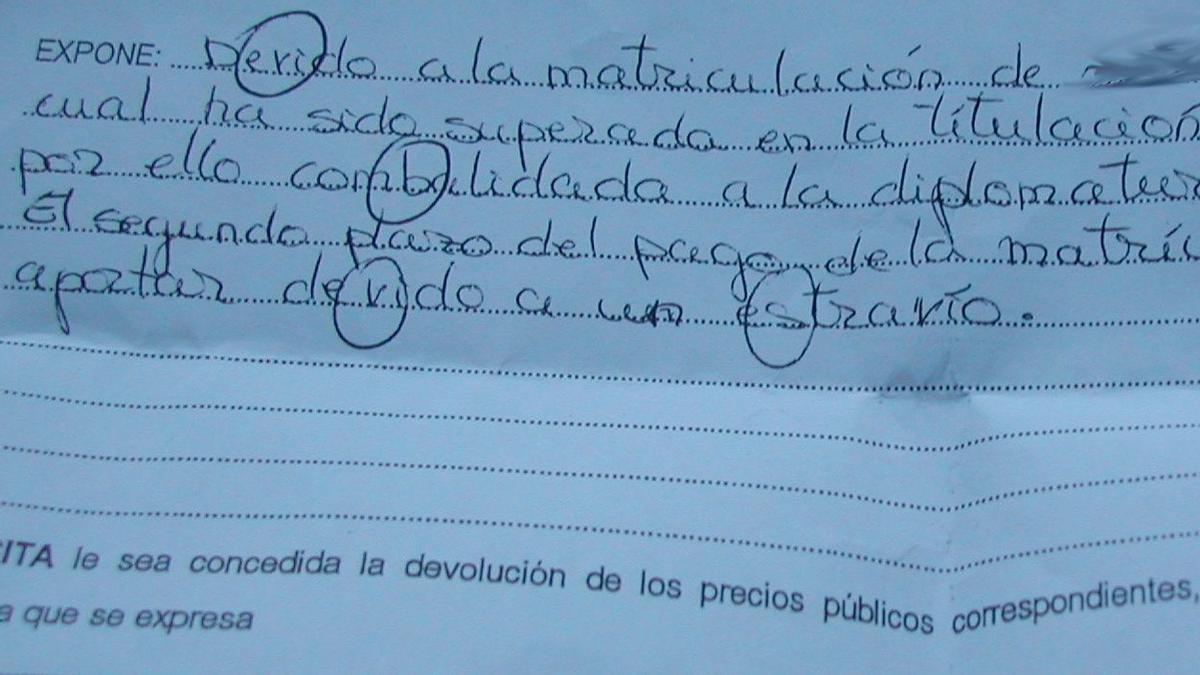 EXPONE: Derido a la matriculación de
cual ha sido superada en la titulación
por ello combalidada a la diplomatur
El segundo plazo del pago de la matríc
aportar derido a un estravío.
CITA le sea concedida la devolución de los precios públicos correspondientes,
a que se expresa